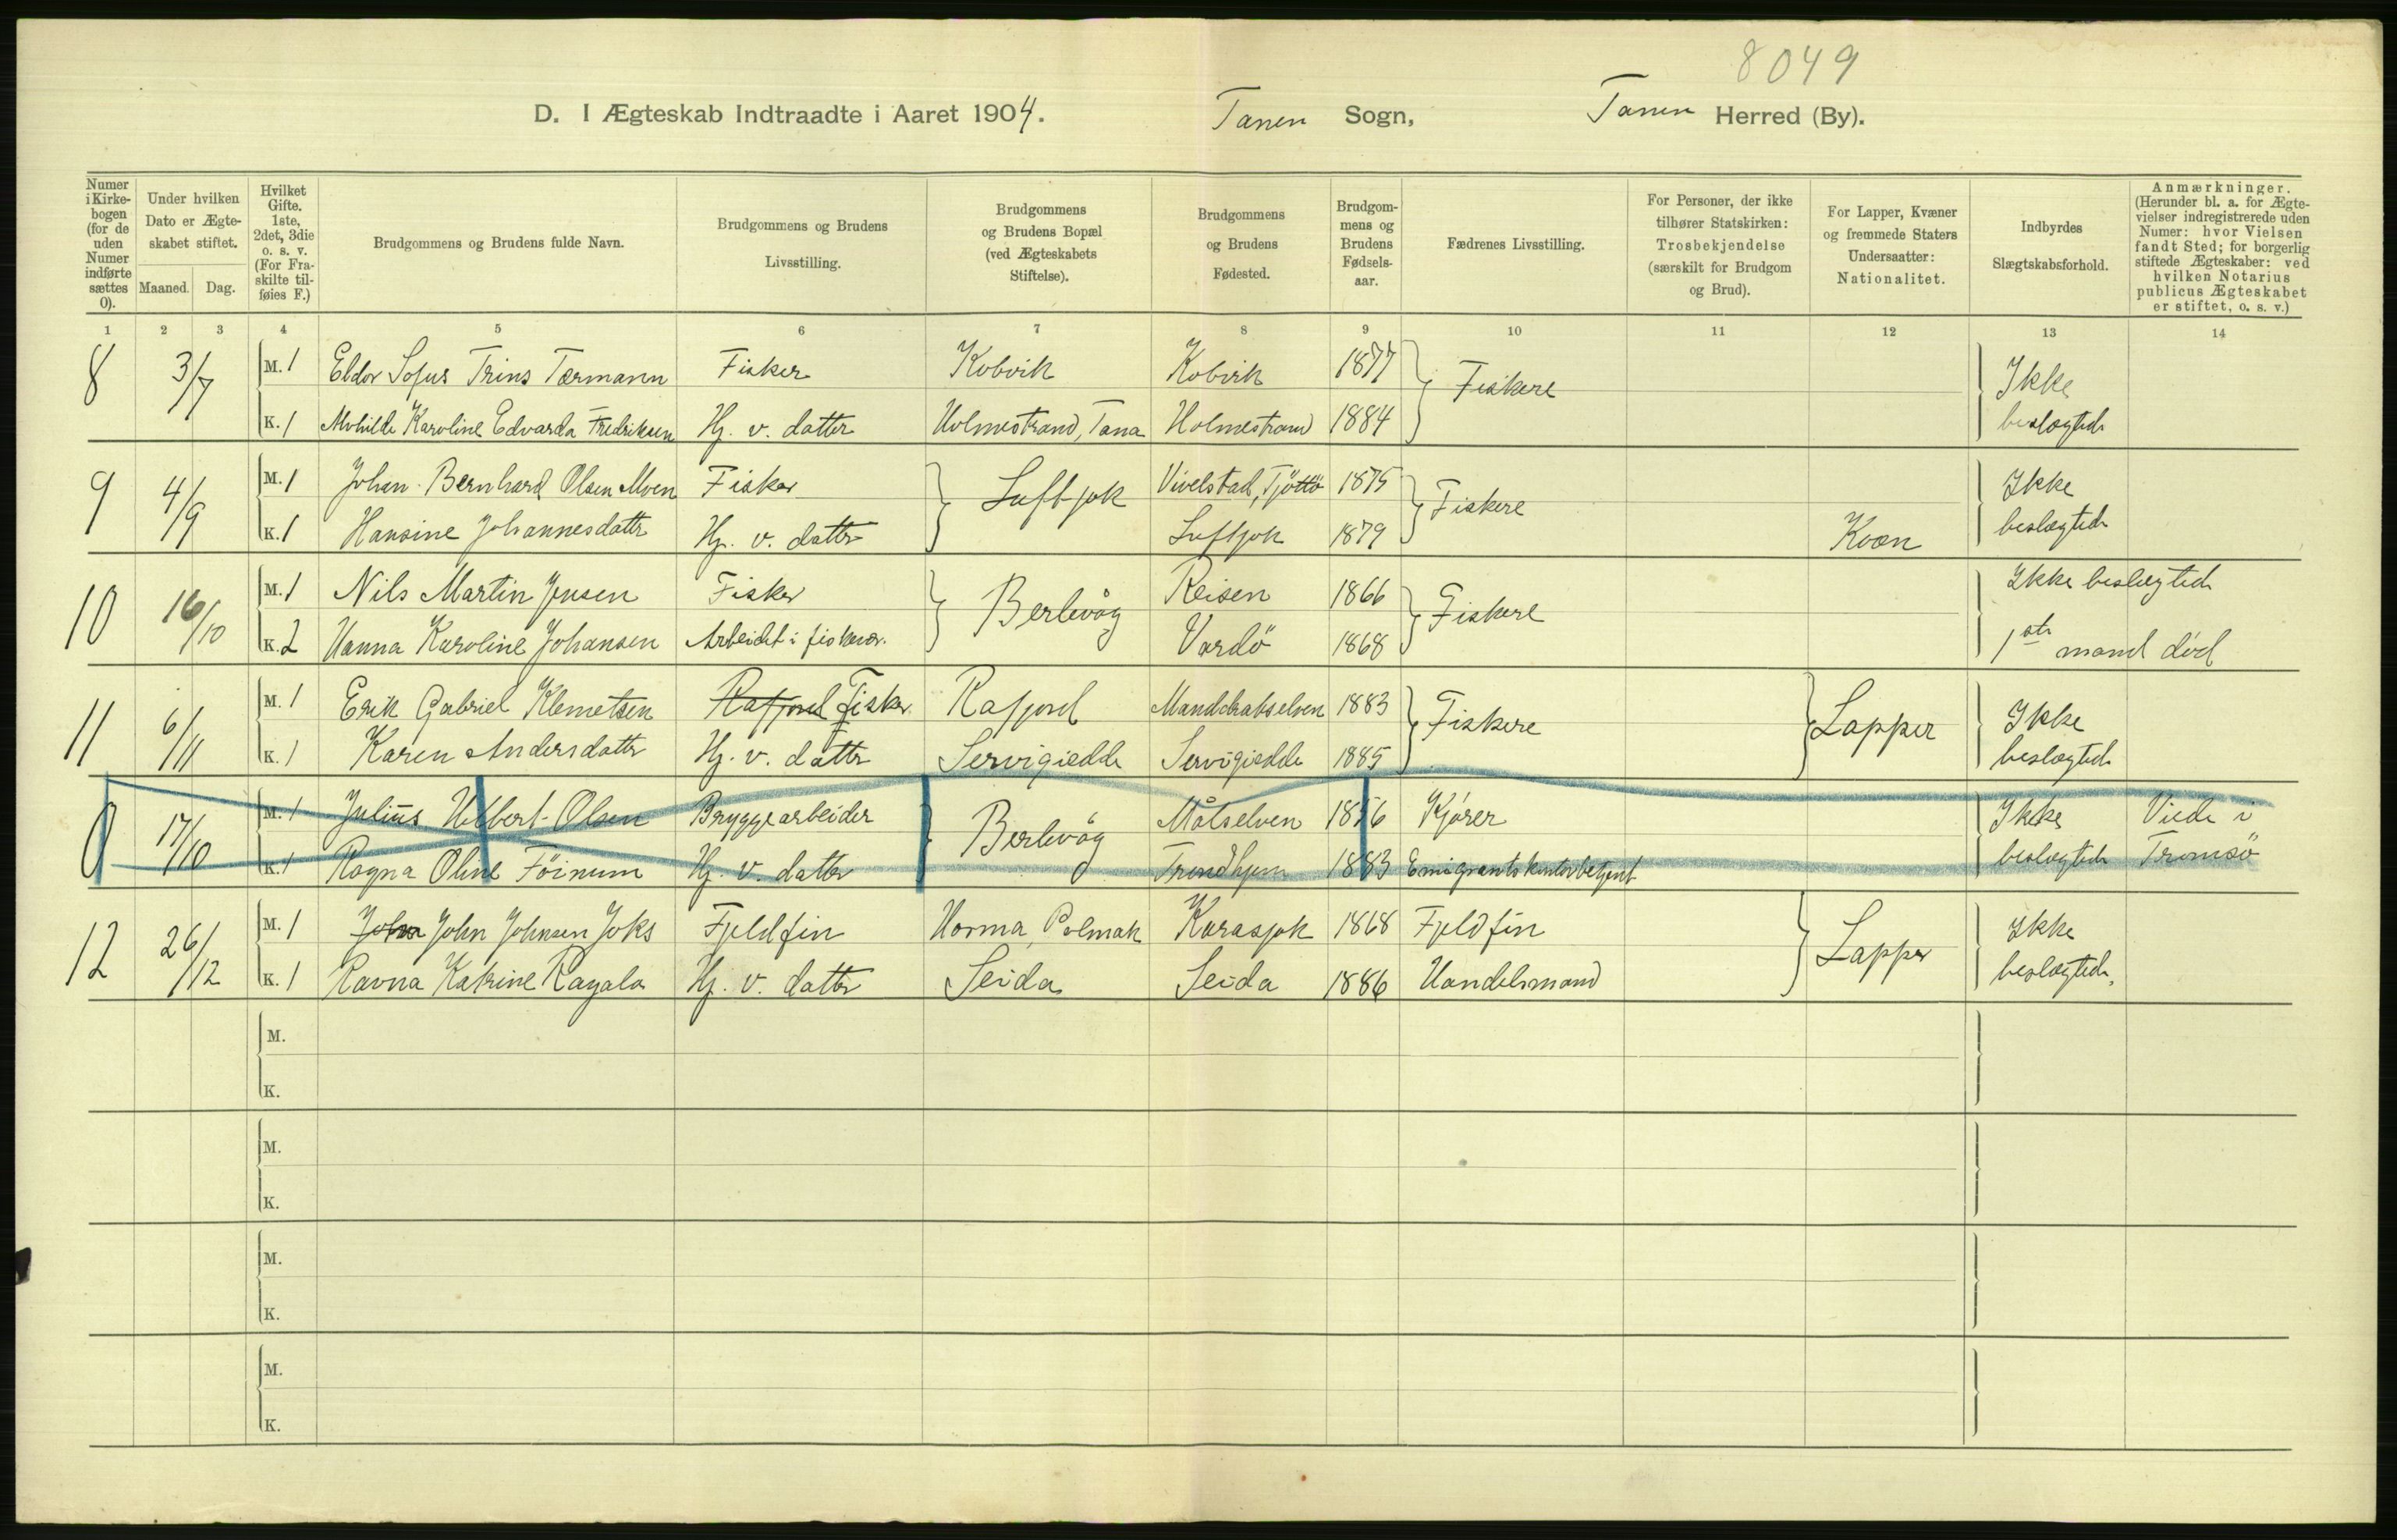 8049
D. I Ægteskab Indtraadte i Aaret 1904. Tanen Sogn, Tanen Herred (By).
Numer i Kirke-bogen (for de uden Numer indførte sættes 0). Under hvilken Dato er Ægte-skabet stiftet. Maaned. Dag. Hvilket Gifte. 1ste, 2det, 3die o. s. v. (For Fra-skilte til-føies F.) Brudgommens og Brudens fulde Navn. Brudgommens og Brudens Livsstilling. Brudgommens og Brudens Bopæl (ved Ægteskabets Stiftelse). Brudgommens og Brudens Fødested. Brudgom-mens og Brudens Fødsels-aar. Fædrenes Livsstilling. For Personer, der ikke tilhører Statskirken: Trosbekjendelse (særskilt for Brudgom og Brud). For Lapper, Kvæner og fremmede Staters Undersaatter: Nationalitet. Indbyrdes Slægtskabsforhold. Anmærkninger. (Herunder bl. a. for Ægte-vielser indregistrerede uden Numer: hvor Vielsen fandt Sted; for borgerlig stiftede Ægteskaber: ved hvilken Notarius publicus Ægteskabet er stiftet, o. s. v.)
1 2 3 4 5 6 7 8 9 10 11 12 13 14
8 3/7 M. 1 Eldor Sofus Trins Tærmann Fisker Kobvik Kobvik 1877 Fiskere Ikke
K. 1 Karoline Edvarda Fredriksen Hj. v. datter Holmestrand, Tana Holmestrand 1884 beslægtede
9 4/9 M. 1 Johan Bernhard Olsen Moen Fisker Luftjok Vivelstad, Tjöttö 1875 Fiskere Ikke
K. 1 Hansine Johannesdatter Hj. v. datter Luftjok 1879 Kvæn beslægtede
10 16/10 M. 1 Nils Martin Jensen Fisker Berlevåg Reisen 1866 Fiskere Ikke beslægtede
K. 2 Hanna Karoline Johansen Arbeidet i fiskevær. Vardö 1868 1ste mand död
11 6/11 M. 1 Erik Gabriel Klemetsen Rafjord Fisker Rafjord Manddrabselven 1883 Fiskere Lapper Ikke
K. 1 Karen Andersdatter Hj. v. datter Servigiedde Servigiedde 1885 beslægtede
0 17/10 M. 1 Julius Hilbert Olsen Bryggearbeider Berlevåg Målselven 1856 Kjörer Ikke Viede i
K. 1 Ragna Oline Föinum Hj. v. datter Trondhjem 1883 Emigrantskontorbetjent beslægtede Tromsö
12 26/12 M. 1 John John Johnsen Joks Fjeldfin Horma, Polmak Karasjok 1868 Fjeldfin Lapper Ikke
K. 1 Ravna Katrine Ragala Hj. v. datter Seida Seida 1886 Handelsmand beslægtede.
M.
K.
M.
K.
M.
K.
M.
K.